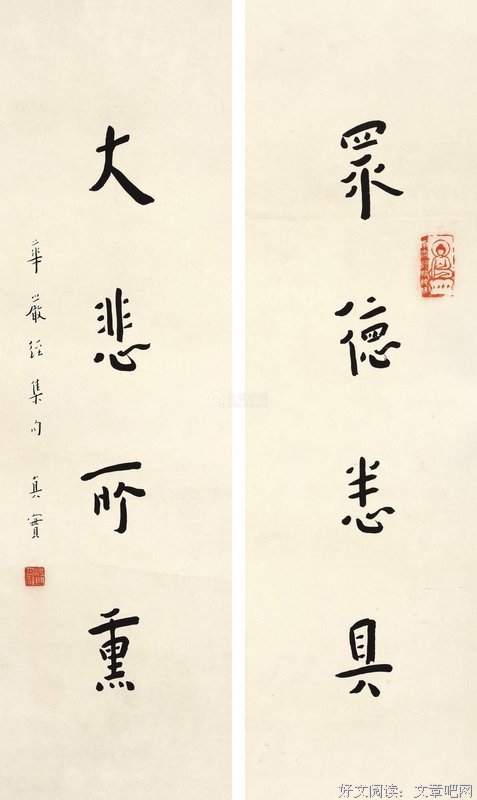 眾德悉具
大悲所熏
華嚴經集句 真實
好文阅读：文章吧网